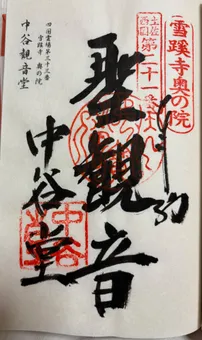 雪蹊寺奥の院
土佐西国
第二十一番
聖観音
中谷堂
四国霊場第三十三番
雪蹊寺 奥の院
中谷観音堂
中谷